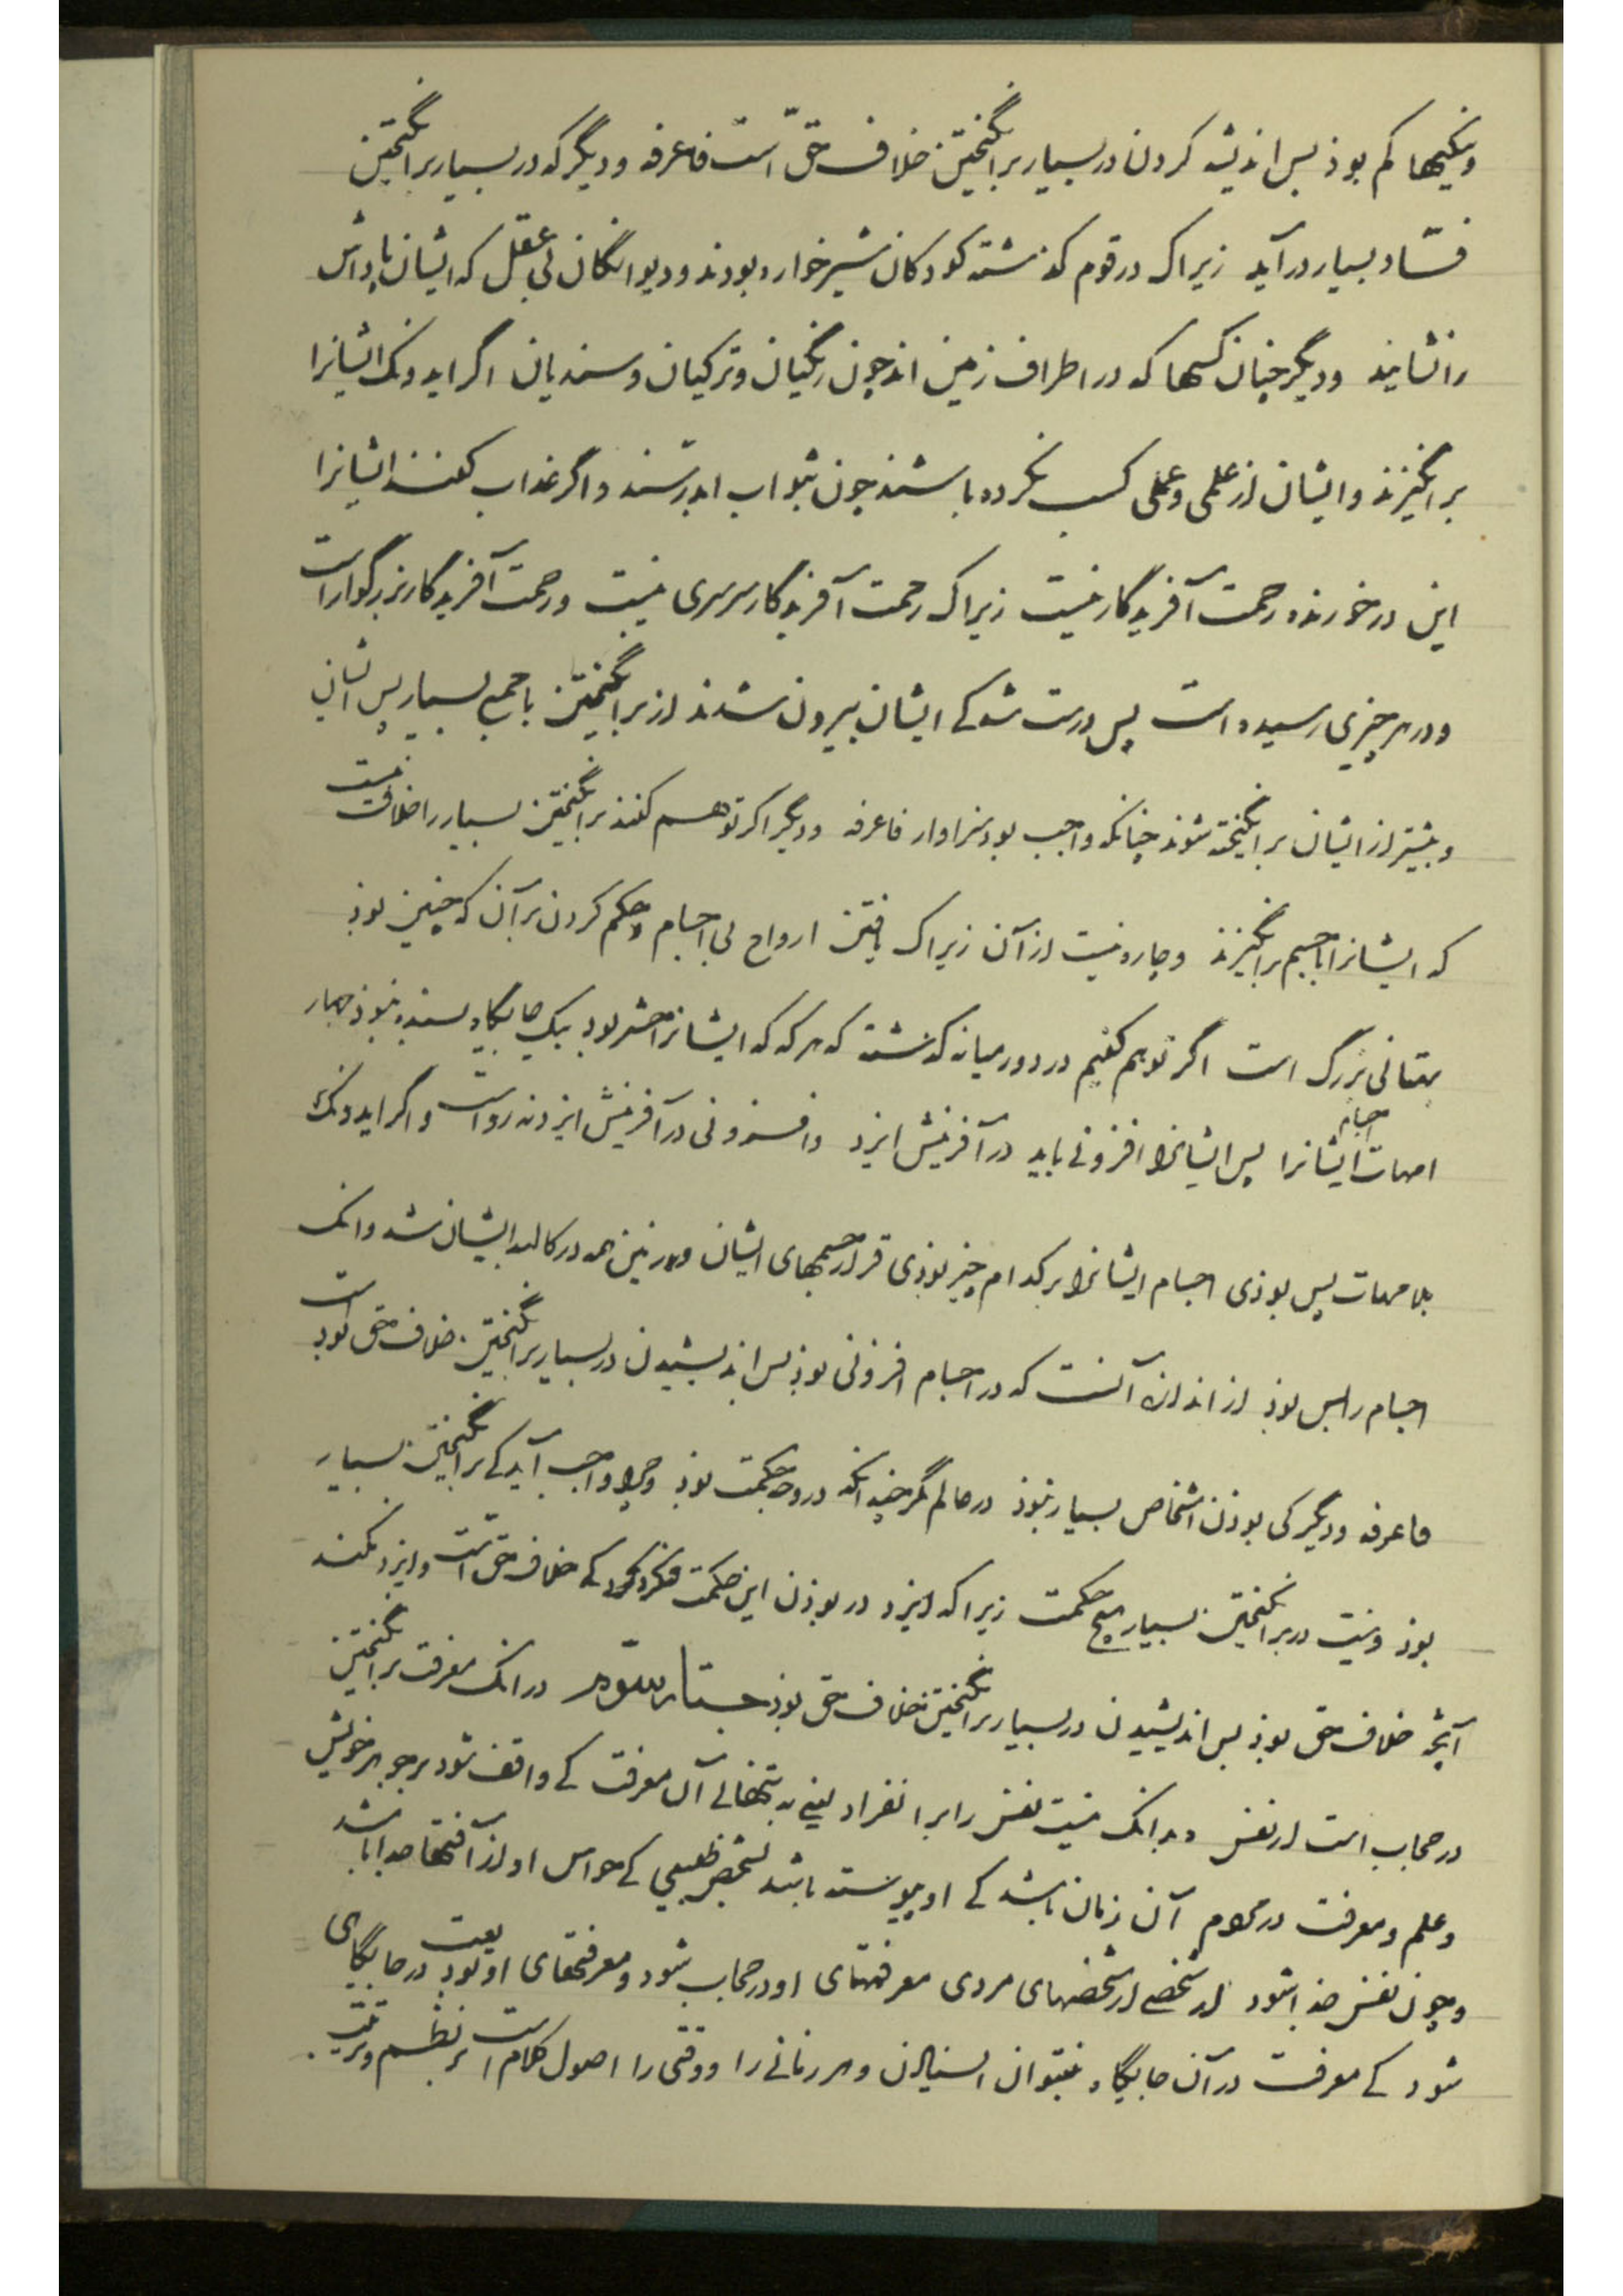 ونیکیها کم بوذ پس اندیشه کردن در بسیار برانگیختن خلاف حقّ است فاعرفه ودیگر که در بسیار برانگیختن
فسّاد بسیار درآید زیراک در قوم کذشته کودکان شیرخواره بودند ودیوانگان بی عقل که ایشان پاداش
را نشایند ودیگر چنان کسها که در اطراف زمین اند چون زنگیان وترکیان وسندیان اگر ایدونک ایشانرا
برانگیزند وایشان از علمی وعملی کسب نکرده باشند چون بثواب اندر رسند واگر عذاب کنند ایشانرا
این درخورنده رحمت آفریدگار نیست زیراک رحمت آفریدگار سرسری نیست ورحمت آفریدگار بزرگوار است
ودر هر چیزی رسیده است پس درست شد کی ایشان بیرون شدند از برانگیختن با جمع بسیار پس ایشان
وبیشتر از ایشان برانگیخته شوند چنانکه واجب بود سزاوار فاعرفه ودیگر اگر توهم کنند برانگیختن بسیار را خلاف نیست
که ایشانرا با جسم برانگیزند وچاره نیست از آن زیراک یافتن ارواح بی اجسام وحکم کردن بر آن که چنین بوذ
بهتانی بزرگ است اگر توهم کنیم در دور میانه کذشته که هر که که ایشانرا حشر بود بیک جایگاه بسنده نبوذ چهار
امهات اجسام ایشانرا پس ایشانرا افزونی باید در آفرینش ایزد وافزونی در آفرینش ایزد نه رواست واگر ایدونک
بلا مهات پس بوذی اجسام ایشانرا بر کدام چیز بوذی قرار جسمهای ایشان وزمین همه در کالبد ایشان شد وانک
اجسام را پس بوذ از اندازه آنست که در اجسام افزونی بوذ پس اندیشیدن در بسیار برانگیختن خلاف حق بود است
فاعرفه ودیگر کی بوذن اشخاص بسیار نبوذ در عالم مگر چندانکه درو حکمت بوذ وچرا واجب آید کی برانگیختن بسیار
بوذ ونیست در برانگیختن بسیار هیچ حکمت زیراکه ایزد در بوذن این حکمت کی خلاف حق است وایزد نکند
آنچه خلاف حق بوذ پس اندیشیدن در بسیار برانگیختن خلاف حق بوذ جستار سوم در انک معرفت برانگیختن
در حجاب است از نفس وبدانک نیست نفس را بر انفراد یعنی به تنهائی آن معرفت کی واقف شود بر جوهر خویش
وعلم ومعرفت در تمام آن زمان باشد کی او پیوسته باشد بشخص طبیعی کی حواس او از آفتها جدا باشد
وچون نفس جدا شود از شخصی از شخصهای مردی معرفتهای او در حجاب شود ومعرفتهای او بود در جایگای
شود کی معرفت در آن جایگاه نتوان السنیالن وهر زمانی را ووقتی را اصول کلام است بر نظم وترتیب.